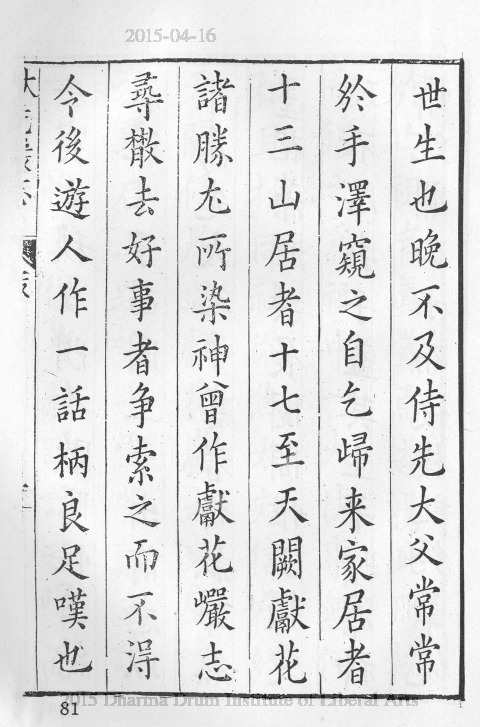 2015-04-16
世生也晚不及侍先大父常常
於手澤窺之自乞歸来家居者
十三山居者十七至天闕獻花
諸勝尤所染神曾作獻花巖志
尋散去好事者争索之而不淂
今後遊人作一話柄良足嘆也
81
2015 Dharma Drum Institute of Liberal Arts